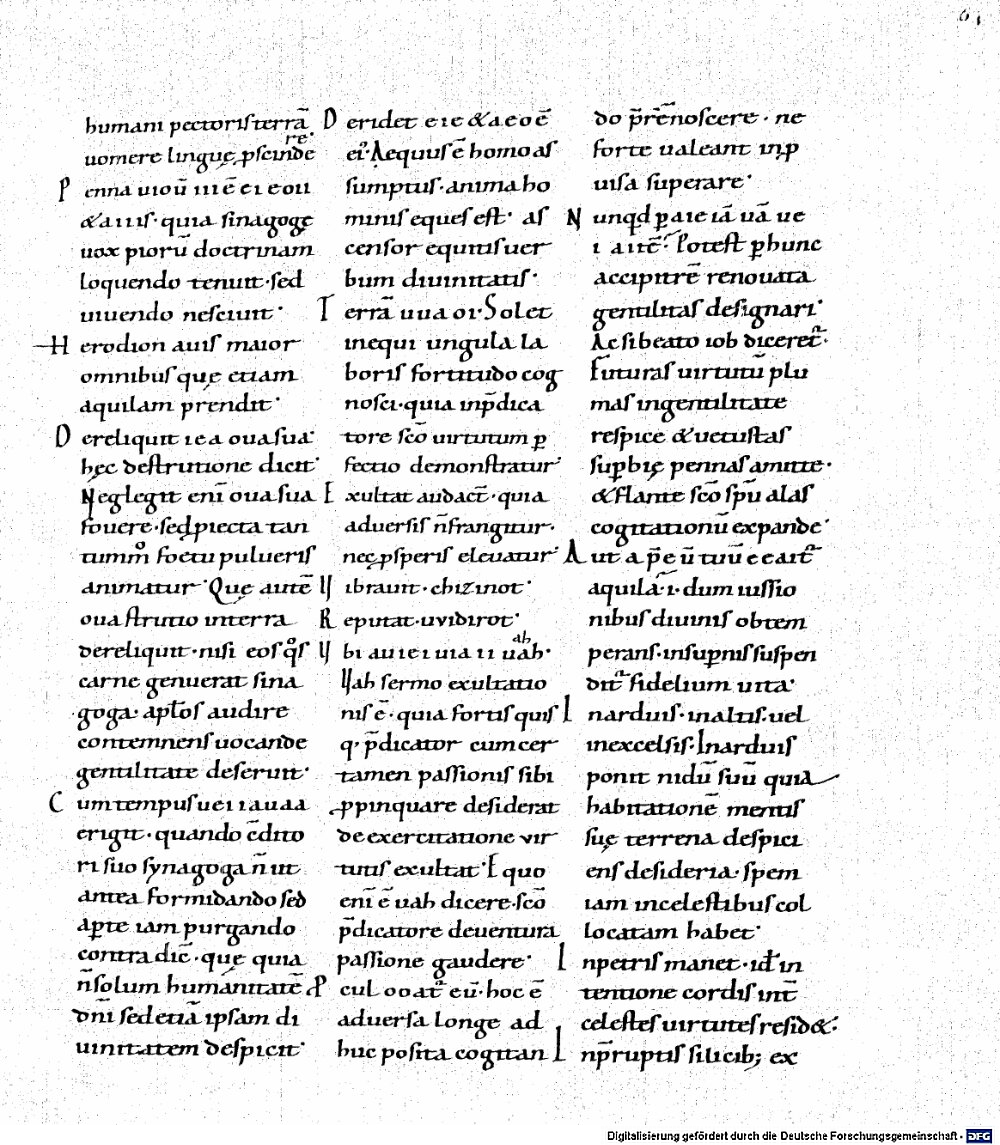 61
humani pectoris terrā
uomere linguę ꝓscinde re
P enna uı oū ııı ē eı e oıı
& aııı s· quia sinagogę
uox pioru᷒ doctrinam
loquendo tenuit· sed
uiuendo nesciuit·
H erodion auis maior
omnibus quę etiam
aquilam prendit·
D ereliquit ı e a oua sua·
hęc destrutione dicit·
Neglegit enī oua sua
fouere· sed ꝓiecta tan
tummo foetu pulueris
animatur· Quę autē
oua strutio interra
dereliquit· nisi eos qͦs
carne genuerat sina
goga· apłos audire
contemnens uocande
gentilitate deseruit·
C um tempus ueı ı a u a a
erigit· quando c̄dito
ri suo synagoga n̄ ut
antea formidando sed
aꝑte iam purgando
contradic̄· quę quia
n̄ solum humanitatē
dn̄i sed etiā ipsam di
uinitatem despicit·
D eridet e ı e & a e o ē
ei· Aequus ē homo as
sumptus· anima ho
minis eques est· as
censor equitis uer
bum diuinitatis·
T errā u ua oı· Solet
inequi ungula la
boris fortitudo cog
nosci· quia inp̄dica
tore sc̄o uirtutum ꝑ
fectio demonstratur·
E xultat audact̄· quia
aduersis n̄ frangitur·
nec ꝓsperis eleuatur·
U ibrauit· chizinot·
R eputat· uvidirot·
U bi a u ı e ı u ı a ı ı uah·
Uah sermo exultatio
nis ē· quia fortis quis
q· p̄dicator cum cer
tamen passionis sibi
ꝓpinquare desiderat
de exercitatione vir
tutis exultat· E quo
enī ē uah dicere· sc̄o
p̄dicatore deuentura
passione gaudere·
P cul o o at̄ eū· hoc ē
aduersa longe ad
huc posita cogitan
do p̄rēnoscere· ne
forte ualeant inꝓ
uisa superare·
N unqd ꝑ a ı e ı ā u ā u e
ı a ıt ē· Potest ꝑ hunc
accipitrē renouata
gentilitas designari·
Ac si beato iob diceret̄·
Futuras uirtutū plu
mas ingentilitate
respice & uetustas
suꝑbię pennas amitte·
& flante sc̄o sp̄u alas
cogitationū expande·
A ut a p̄ e ū tuū e e a ıt
aquila· ı· dum iussio
nibus diuinis obtem
perans· insuꝑnis suspen
dit̄ fidelium uita·
I narduis· inaltis· uel
inexcelsis· Inarduis
ponit nidū suū quia
habitationē mentis
suę terrena despici
ens desideria· spem
iam incelestibus col
locatam habet·
I npetris manet· id in
tentione cordis int̄
celestes uirtutes resid&·
I np̄ruptis silicib; ex
Digitalisierung gefördert durch die Deutsche Forschungsgemeinschaft - DFG